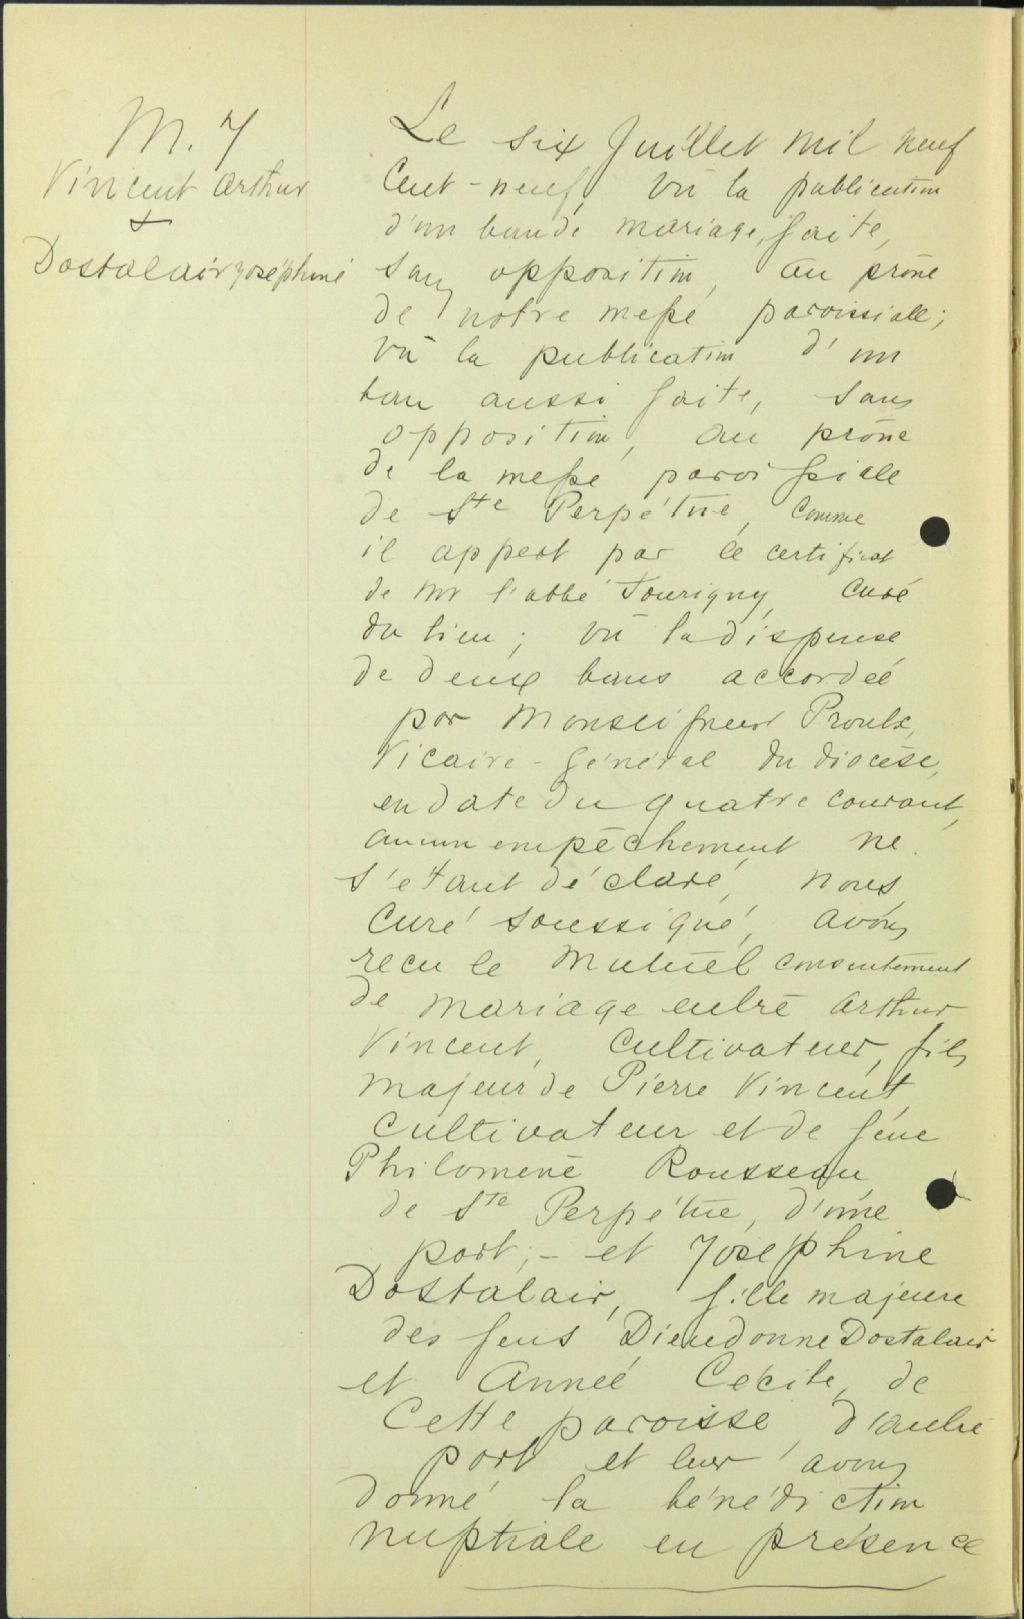 M. 7
Vincent Arthur
+
Dostalair Joséphine
Le six Juillet mil neuf
Cent-neuf, vû la publication
d'un ban de mariage, faite,
sans opposition, au prône
de notre messe paroissiale;
vû la publication d'un
ban aussi faite, sans
opposition, au prône
de la messe paroissiale
de Ste Perpétue, comme
il appert par le certificat
de Mr l'abbé Tourigny, curé
du lieu; vû la dispense
de deux bans accordée
par Monseigneur Proulx,
Vicaire-Général du diocèse,
en date du quatre courant,
aucun empêchement ne
s'étant déclaré, nous,
Curé soussigné, avons
recu le mutuel consentement
de mariage entre Arthur
Vincent, Cultivateur, fils
majeur de Pierre Vincent
Cultivateur et de feue
Philomène Rousseau,
de Ste Perpétue, d'une
part; - et Joséphine
Dostalair, fille majeure
des feus Dieudonné Dostalair
et Année Cécile, de
Cette paroisse, d'autre
part et leur avons
donné la bénédiction
nuptiale en présence